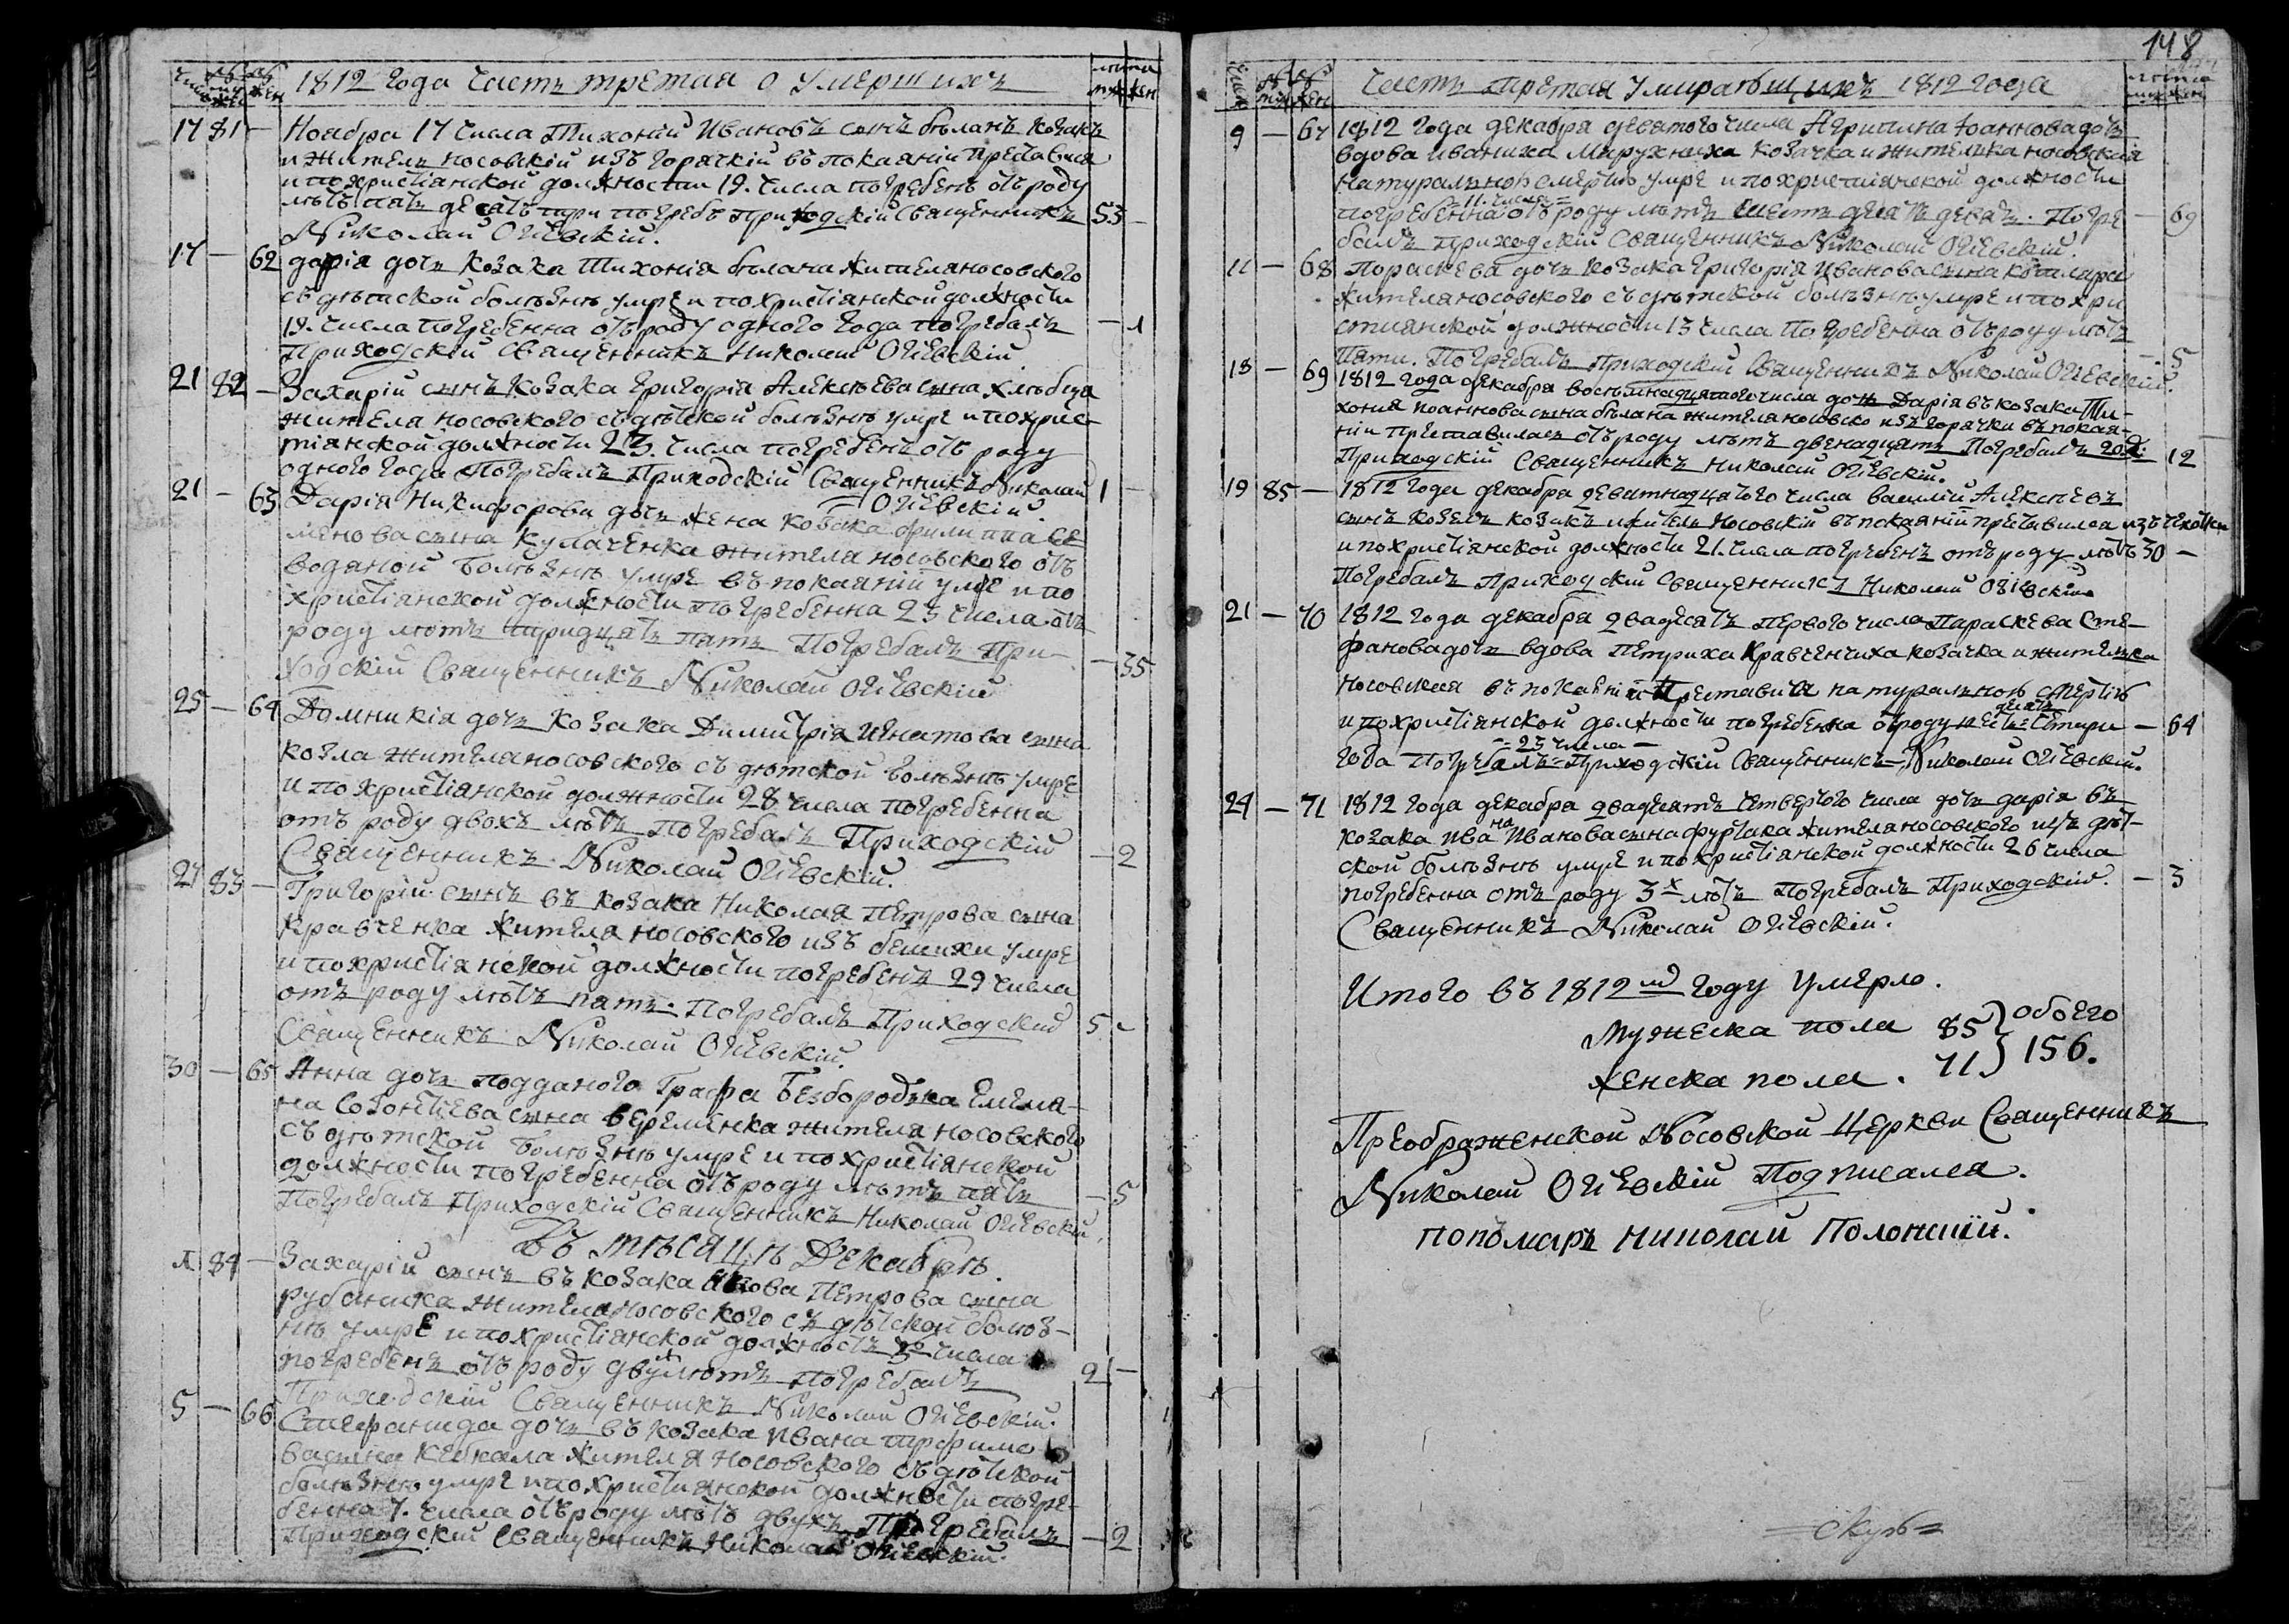 1812 Года Часть третая о Умершихъ
17 81 — Ноября 17 числа Тихоній Ивановъ сынъ бѣланъ козакъ
и житель носовскій изъ горячкій въ покаяніи преставися
и по христіянской должности 19. числа погребенъ отъ роду
лѣтъ пять десятъ три погребъ приходскій Священникъ 53 —
Николай Огіевскій.
17 — 62 дарія дочь козака Тихонія бѣлана жителя носовского
съ дѣтской болѣзнѣ умре и по христіянской должности
19. числа погребенна отъ роду одного года погребалъ — 1
Приходскій Священникъ Николай Огіевскій
21 82 — Захарій сынъ козака григорія Алексѣева сына хлѣбца
жителя носовского съ дѣтской болѣзнѣ умре и по хрис-
тіянской должности 23. числа погребенъ отъ роду
одного года Погребалъ Приходскій Священникъ Николай 1 —
Огіевскій.
21 — 63 Дарія Никифорова дочь жена козака филиппа Се
менова сына кулаченка жителя носовского отъ
водяной болѣзнѣ умре въ покаяній умре и по
христіянской должности погребенна 23 числа отъ
роду лѣтъ тридцать пять Погребалъ При — 35
ходскій Священникъ Николай Огіевскій
25 — 64 Домникія дочь козака Димитрія Игнатова сына
козла жителя носовского съ дѣтской болѣзнѣ умре
и по христіянской должности 28 числа погребенна
отъ роду двохъ лѣтъ погребалъ Приходскій — 2
Священникъ Николай Огіевскій.
27 83 — Григорій сынъ въ козака Николая Петрова сына
Кравченка жителя носовского изъ бешихи умре
и по христіянской должности погребенъ 29 числа
отъ роду лѣтъ пять. Погребалъ Приходскій 5 —
Священникъ Николай Огіевскій.
30 — 65 Анна дочь подданого Графа Безбородька Емелья-
на Созонтіева сына веремѣнка жителя носовского
съ дѣтской болѣзнѣ умре и по христіянской
должности погребенна отъ роду лѣтъ пять — 5
Погребалъ Приходскій Священникъ Николай Огіевскій.
Въ мѣсяцѣ Декабрѣ.
1 84 — Захарій сынъ въ козака Якова Петрова сына
рубаника жителя носовского съ дѣтской болѣз-
нѣ умре и по христіянской должность 3го числа
погребенъ отъ роду двухъ лѣтъ погребалъ 2 —
Приходскій Священникъ Николай Огіевскій.
5 — 66 Стефанида дочь въ козака Ивана трофимо
ва сына Кебкала жителя носовского съ дѣтской
болѣзнѣ умре и по христіянской должности погре-
бенна 7. числа отъ роду лѣтъ двухъ Погребалъ — 2
Приходскій Священникъ Николай Огіевскій.
148
Часть Третая Умирабшихъ 1812 года
9 — 67 1812 года декабря девятого числа Агрипина Іоаннова дочь
вдова иваниха Марухниха козачка и жителька носовская
натуральною смертію умре и по христіянской должности
11. числа
погребенна отъ роду лѣтъ шесть десятъ девять. Погре — 69
балъ приходскій Священникъ Николай Огіевскій.
11 — 68 Пораскева дочь козака григорія Иванова сына котляра
жителя носовского съ дѣтской болѣзнѣ умре и по хри
стиянской должности 13 числа погребенна отъ роду лѣтъ
пяти. Погребалъ Приходскій Священникъ Николай Огіевскій. — 5
18 — 69 1812 года декабря восемнадцятого числа дочь Дарія въ козака Ти-
хонія иоаннова сына бѣлана жителя носовско изъ горячки въ покая-
ніи преставилась отъ роду лѣтъ двенадцять Погребалъ 20д: 12
Приходскій Священникъ Николай Огіевскій.
19 85 — 1812 года декабря девятнадцатого числа василій Алексѣевъ
сынъ козелъ козакъ и житель Носовскій въ покаяній преставился изъ чехотки
и по христіянской должности 21. числа погребенъ отъ роду лѣтъ 30 —
Погребалъ приходскій Священникъ Николай Огіевскій
21 — 70 1812 года декабря двадесятъ первого числа Параскева Сте-
фанова дочь вдова Петриха Кравченчиха козачка и жителька
Носовская въ покаяніи Преставися натуральною смертію
десятъ
и по христіянской должности погребенна отъ роду шесть четыри — 64
— 23 числа —
года Погребалъ Приходскій Священникъ Николай Огіевскій.
24 — 71 1812 года декабря двадцять четвертого числа дочь дарія въ
козака Ивана Иванова сына фурсака жителя носовского изъ дѣт-
ской болѣзнѣ умре и по христіянской должности 26 числа
погребенна отъ роду 3х лѣтъ Погребалъ Приходскій. — 3
Священникъ Николай Огіевскій.
Итого въ 1812м году умерло.
Мужеска пола 85 } обоего
женска пола. 71 } 156.
Преображенской Носовской Церкви Священникъ
Николай Огіевскій Подписался.
попомарь николай Полонскій.